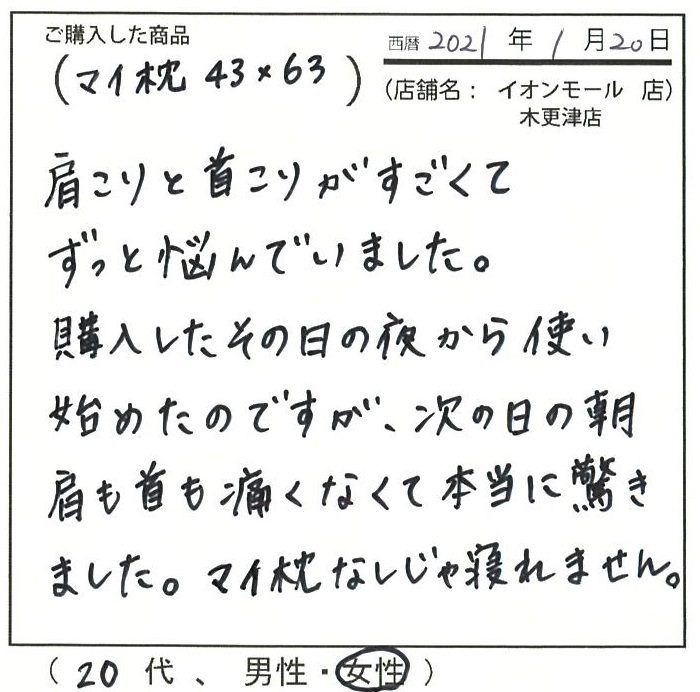 ご購入した商品
(マイ枕 43×63)
西暦 2021 年 1 月 20 日
(店舗名: イオンモール 店)
木更津店
肩こりと首こりがすごくて
ずっと悩んでいました。
購入したその日の夜から使い
始めたのですが、次の日の朝
肩も首も痛くなくて本当に驚き
ました。マイ枕なしじゃ寝れません。
(20 代、男性・女性)